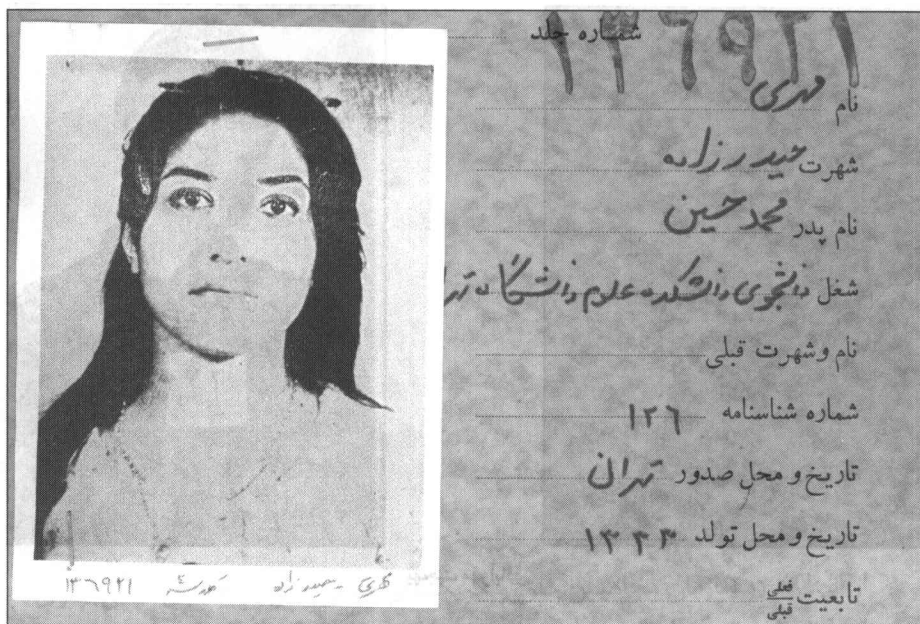 شماره جلد ۱۳۶۹۲۱
نام مهری
شهرت حیدرزاده
نام پدر محمدحسین
شغل دانشجوی دانشکده علوم دانشگاه تهرا
نام و شهرت قبلی
شماره شناسنامه ۱۲۶
تاریخ و محل صدور تهران
تاریخ و محل تولد ۱۳۳۳
تابعیت فعلی
قبلی
مهری حیدرزاده ۱۳۶۹۲۱